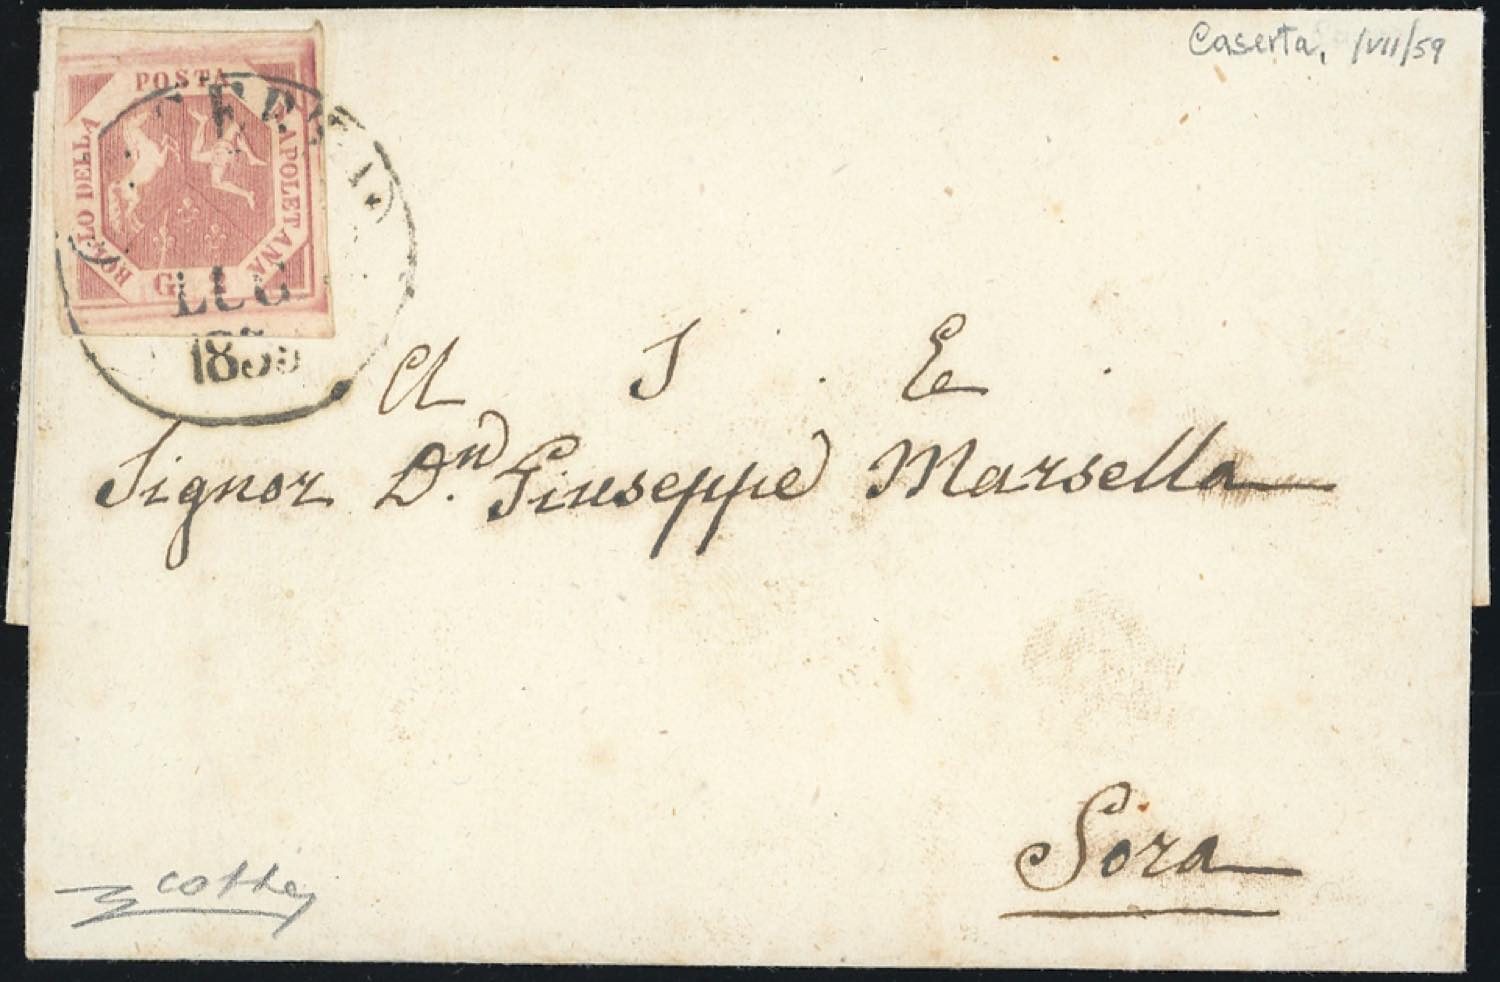 Caserta, /VII/59
POSTA
BOLLO DELLA
NAPOLETANA
G 1
LUG
1859
A S . E .
Signor D.n Giuseppe Marsella
Sora